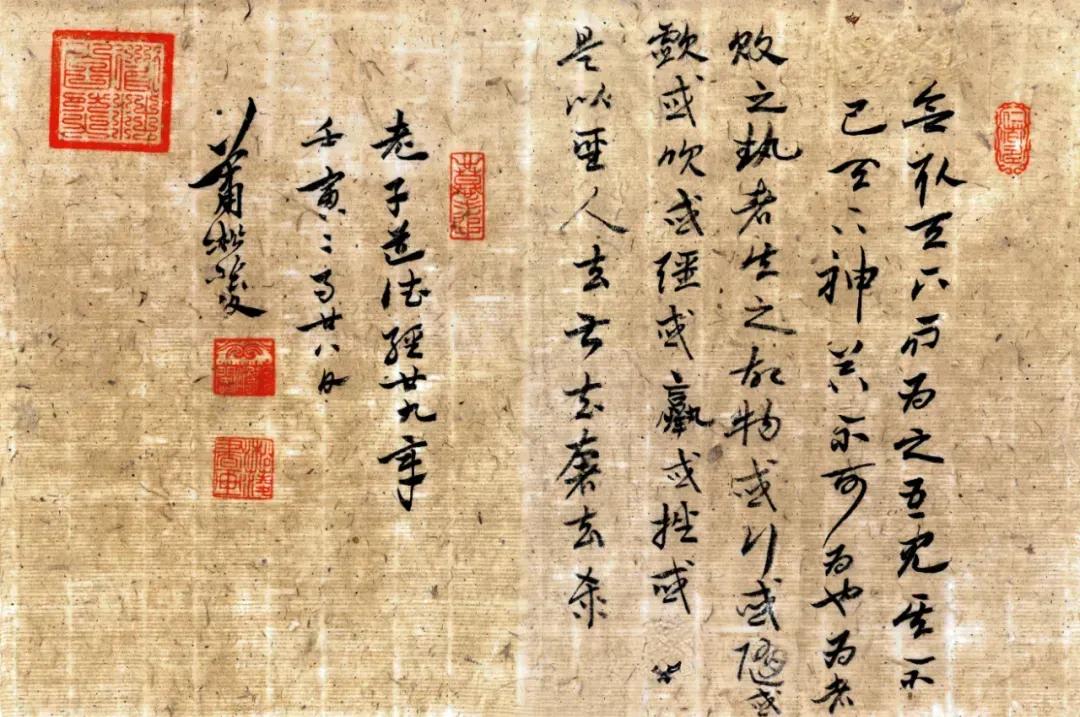 取天下而為之五見其不
已天下神器不可為也為者
敗之執者失之故物或行或隨或
歔或吹或彊或羸或挫或
是以聖人去甚去奢去
老子道德經廿九章
壬寅二月廿八日
蕭淞